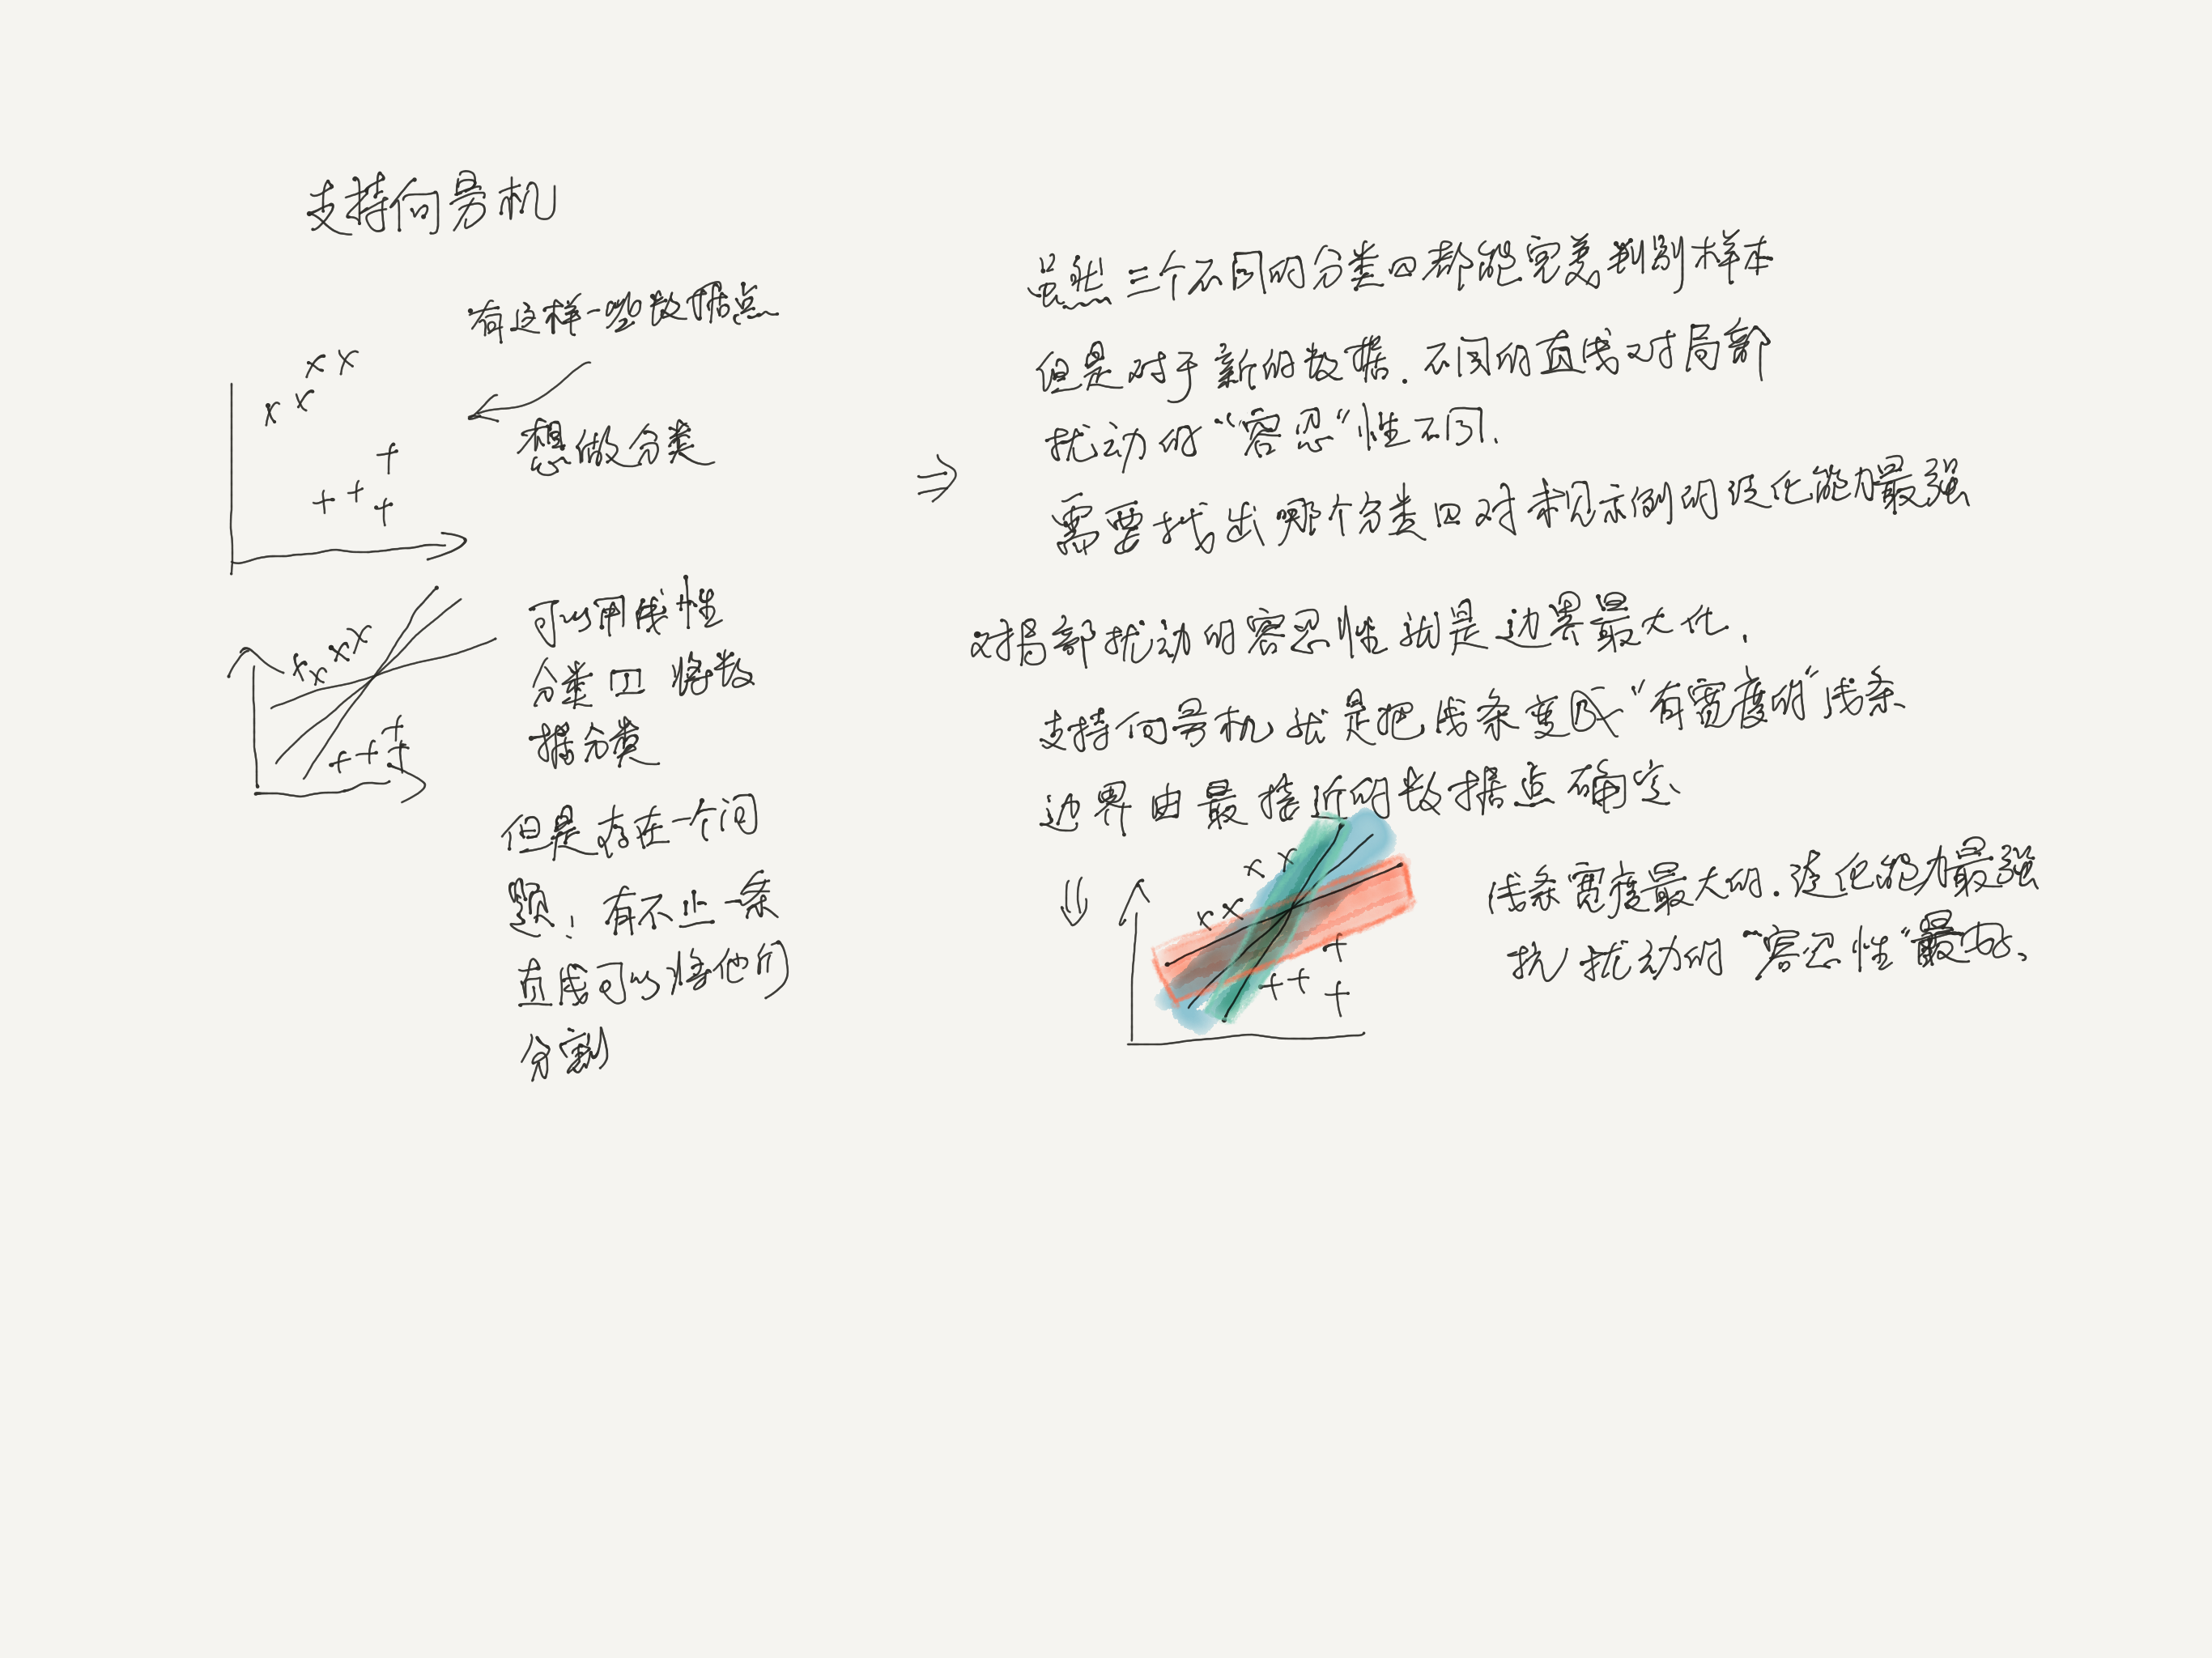 支持向量机
有这样一些数据点
想做分类
可以用线性
分类口将数
据分类
但是存在一个问
题：有不止一条
直线可以将他们
分割
虽然三个不同的分类口都能完美判别样本
但是对于新的数据.不同的直线对局部
扰动的“容忍”性不同.
需要找出哪个分类口对未见示例的泛化能力最强
对局部扰动的容忍性就是边界最大化.
支持向量机就是把线条变成“有宽度的”线条
边界由最接近的数据点确定、
线条宽度最大的.泛化能力最强
抗扰动的“容忍性”最好、